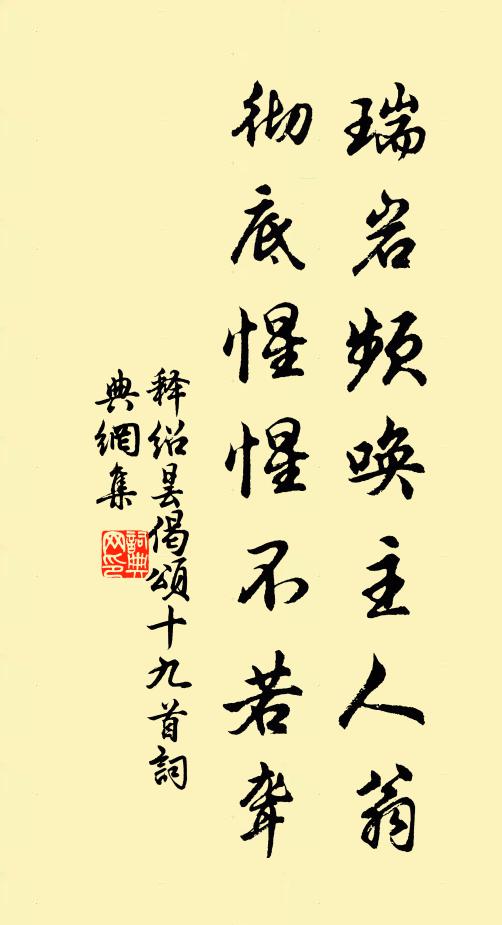 瑞岩频唤主人翁
彻底惺惺不若聋
释绍昙偈颂十九首詞
典網集
詞典网印